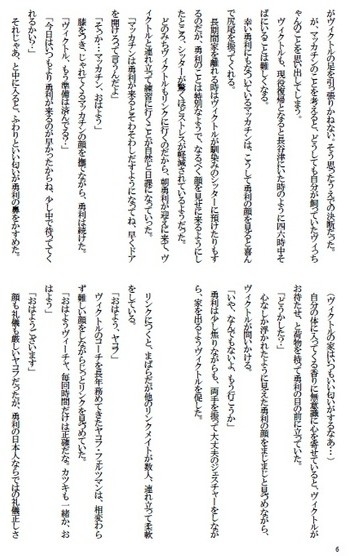 がヴィクトルの足を引っ張りかねない。そう思ったうえでの決断だった。
が、マッカチンのことを考えると、どうしても自分が飼っていたヴィっち
ゃんのことを思い出してしまう。
ヴィクトルも、現役復帰となると長谷津にいた時のように四六時中そ
ばにいることは難しくなる。
幸い勇利にもなついているマッカチンは、こうして勇利の顔を見ると喜ん
で尻尾を振ってくれる。
長期間家を離れる時はヴィクトルが馴染みのシッターに預けたりもす
るのだが、勇利のことは特別なようで、なるべく顔を見せに来るようにし
たところ、シッターが驚くほどストレスが軽減されているようだ。
どのみちヴィクトルもリンクに行くのだから、朝勇利が迎えに来て、ヴ
ィクトルと連れ立って練習に行くことが自然と日課になっていった。
「マッカチンは勇利が来るとそわそわしだすようになってね、早くドア
を開けろって言うんだよ」
「そっか…マッカチン、おはよう」
膝をつき、じゃれてくるマッカチンの顔を撫でながら、勇利は続けた。
「ヴィクトル、もう準備は済んでる？」
「今日はいつもより勇利が来るのが早かったからね、少し中で待ってく
れるかい？」
それじゃあ、と中に入ると、ふわりといい匂いが勇利の鼻をかすめた。
（ヴィクトルの家はいつもいい匂いがするなあ…）
自分の体に入ってくる香りに無意識に心を寄せていると、ヴィクトルが
お待たせ、と荷物を持て勇利の目の前に立っていた。
「どうかした？」
心なしか浮かれたように見えた勇利の顔をまじまじと見つめながら、
ヴィクトルが問いかける。
「いや、なんでもないよ、もう行こうか」
勇利は少し焦りながらも、両手を振って大丈夫のジェスチャーをしなが
ら、家を出るようヴィクトルを促した。
リンクにつくと、まばらだが他のリンクメイトが数人、連れ立って柔軟
をしている。
「おはよう、ヤコフ」
ヴィクトルのコーチを長年務めてきたヤコフ・フェルツマンは、相変わら
ず難しい顔をしながらじっとリンクを見つめていた。
「おはようヴィーチャ、毎回時間だけは正確だな。カツキも一緒か、お
はよう」
「おはようございます」
顔も礼儀も厳しいヤコフだったが、勇利の日本人ならではの礼儀正しさ
6